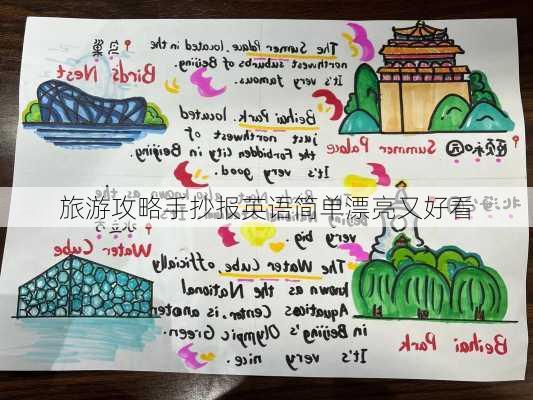 鸟巢
Bird's Nest
The Sumer Palace. located in the
northwest suburbs of Beijing.
It's very famous.
Beihai Park. located
just northwest of
the Forbidden City in Beijing.
It's very good.
颐和园
Summer Palace
旅游攻略手抄报英语简单漂亮又好看
very big.
The Water Cube officially
known as the National
Aquatics Center, is
in Beijing's Olympic Green.
It's very nice.
Water Cube
Beihai Park